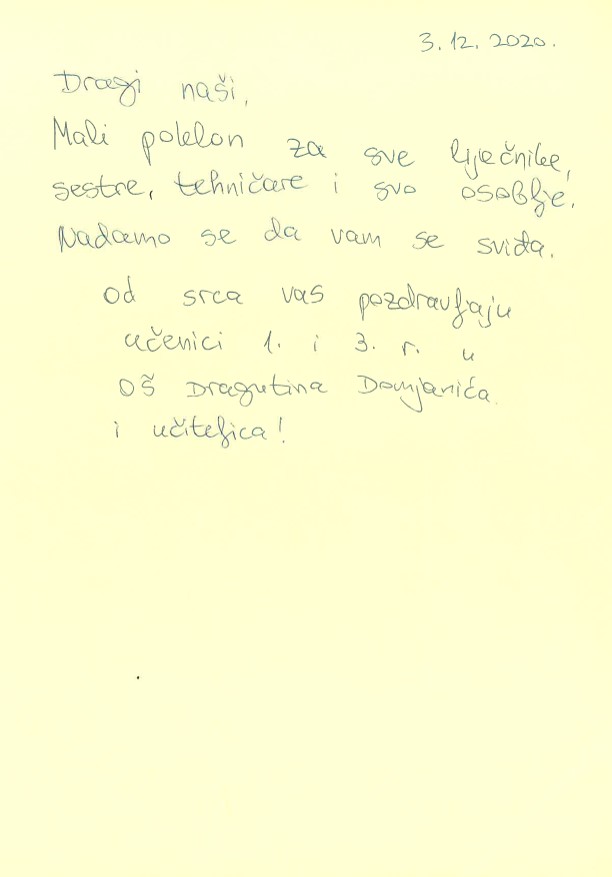 3. 12. 2020.
Dragi naši,
Mali poklon za sve liječnike,
sestre, tehničare i svo osoblje.
Nadamo se da vam se sviđa.
Od srca vas pozdravljaju
učenici 1. i 3. r. u
OŠ Dragutina Domjanića
i učiteljica!